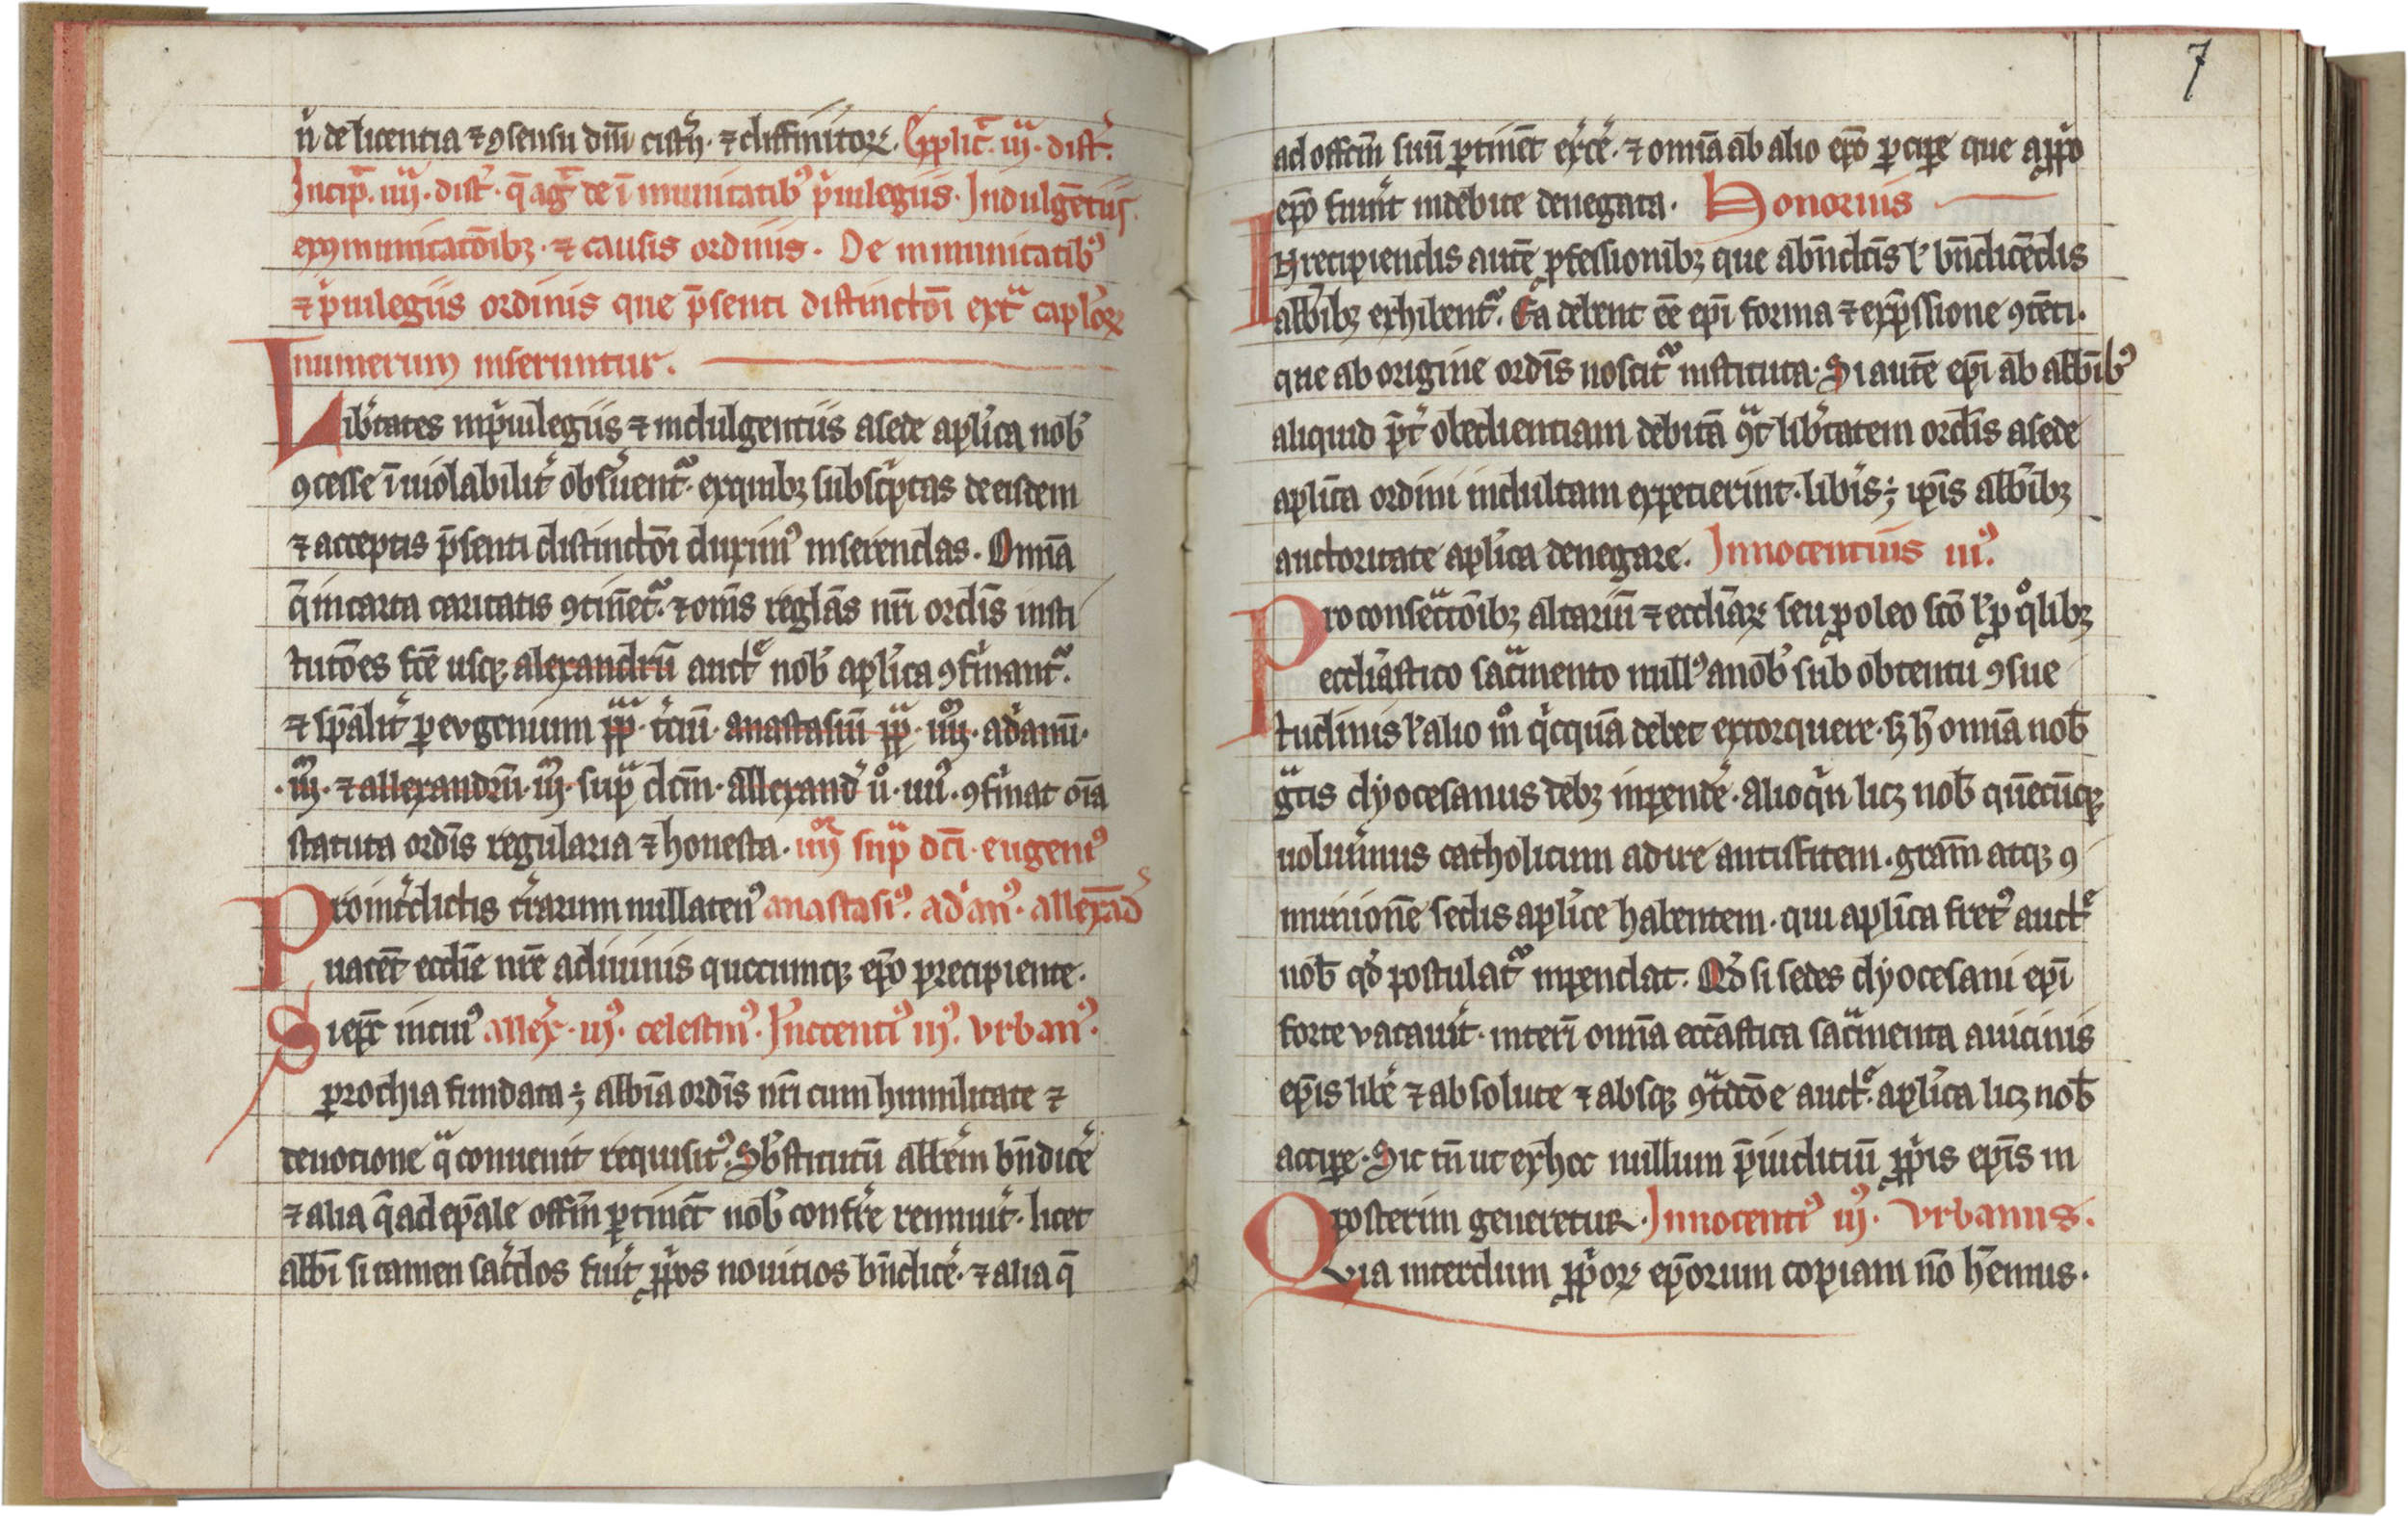 n̄ de licentia ⁊ ꝯsensu dn̄i cist̄ͥ. ⁊ diffinitoꝝ. Explic̄. iij. dist̄.
Incip̄. iiij. dist̄. q̄ ag̅ de īmunitatibꝰ pͥuilegiis. Indulgētiis
exꝯmunicatōibꝫ. ⁊ causis ordinis. De inmunitatibꝰ
⁊ pͥuilegiis ordinis que p̄senti distinctōi ext̄ᵃ cap̄loꝝ
numerum inseruntur.
Lib̄tates inpͥuilegiis ⁊ indulgentiis a sede apl̄ica nob̄
ꝯcesse īuiolabilit̄ obs̄uent᷑. ex quibꝫ subscͥptas de eisdem
⁊ acceptis p̄senti distinctōi duximꝰ inserendas. Omīa
q̄ in carta caritatis ꝯtinēt᷑. ⁊ om̄s reglās nr̄i ordīs insti
tutōes fc̄e usqꝫ alexandrū auctᵉ nob̄ apl̄ica ꝯfirmant᷑.
⁊ sp̄alit̄ ꝑ eugenium pp̄. t̄ciū. anastasiū pp̄. iiij. adͥanū.
.iiij. ⁊ allexandrū. iij. supᵃ dc̄m. allexand̄ ū. iiij. ꝯfirmat oīa
statuta ordīs regularia ⁊ honesta. iiij supᵃ dc̄i. eugeniꝰ
Pro int̄dictis t̄rarum nullatenꝰ anastasiꝰ. adͥanꝰ. allexād̄
uacēt eccl̄ie nr̄e a diuinis quocumqꝫ ep̄o precipiente.
Si ep̄c in cuiꝰ allex̄. iijꝰ. celestinꝰ. Innocentiꝰ iijꝰ. vrbanꝰ.
ꝑrochia fundata ÷ abb̄ia ordīs nr̄i cum humilitate ⁊
deuotione qᵃ conuenit requisitꝰ. Sb̄stitutū abb̄em bn̄dic̄e
⁊ alia q̄ ad ep̄ale offm̄ ꝑtinēt nob̄ conf̄re rennuit̄. licet
abb̄i si tamen sac̄dos fuit̄ ꝓpͥos nouitios bn̄dic̄e. ⁊ alia q̄
7
ad offm̄ suū ꝑtinēt ex̄c̄e. ⁊ omīa ab alio ep̄o ꝑciꝑe que a ꝓpͥo
ep̄o fuint̄ indebite denegata. Honorius
In recipiendis autē ꝓfessionibꝫ que a bn̄dictis lꝰ bn̄dicēdis
abb̄ibꝫ exhibent᷑. Ea debent ēē ep̄i forma ⁊ exp̄ssione ꝯtēti.
que ab origine ordīs noscit᷑ instituta. Si autē ep̄i ab abb̄ibꝰ
aliquid p̄t̄ obedientiam debitā ꝯtᵃ lib̄tatem ordīs a sede
apl̄ica ordini indultam expetierint. lib̄is ÷ ip̄is abb̄ibꝫ
auctoritate apl̄ica denegare. Innocentius iijꝰ.
Pro consecᵃtōibꝫ altariū ⁊ eccl̄iaꝝ seu ꝓ oleo sc̄o lꝰ ꝓ qͦlibꝫ
eccl̄iastico sacᵃmento nullꝰ a nob̄ sub obtentu ꝯsue
tudinis lꝰ alio mͦ qͥcquā debet extorquere. sꝫ h̄ omīa nob̄
gᵃtis dyocesanus debꝫ inpend̄e. alioqͥn licꝫ nob̄ quēcūqꝫ
uoluim̄us catholicum adire antistitem. gram̄ atqꝫ ꝯ
munionē sedis apl̄ice habentem. qui apl̄ica fretꝰ auctᵉ
nob̄ qd̄ postulat᷑ inpendat. Qd̄ si sedes dyocesani ep̄i
forte vacauit̄. interī omīa eccl̄iastica sacᵃmenta a uicinis
ep̄is lib̄e ⁊ absolute ⁊ absqꝫ ꝯtᵃdicōe auctᵉ. apl̄ica licꝫ nob̄
acciꝑe. Sic tn̄ ut ex hoc nullum p̄iudiciū ꝓpͥis ep̄is in
posterim generetur. Innocentiꝰ iijꝰ. Vrbanus.
Quia interdum ꝓpͥoꝝ ep̄orum copiam nō h̄emus.